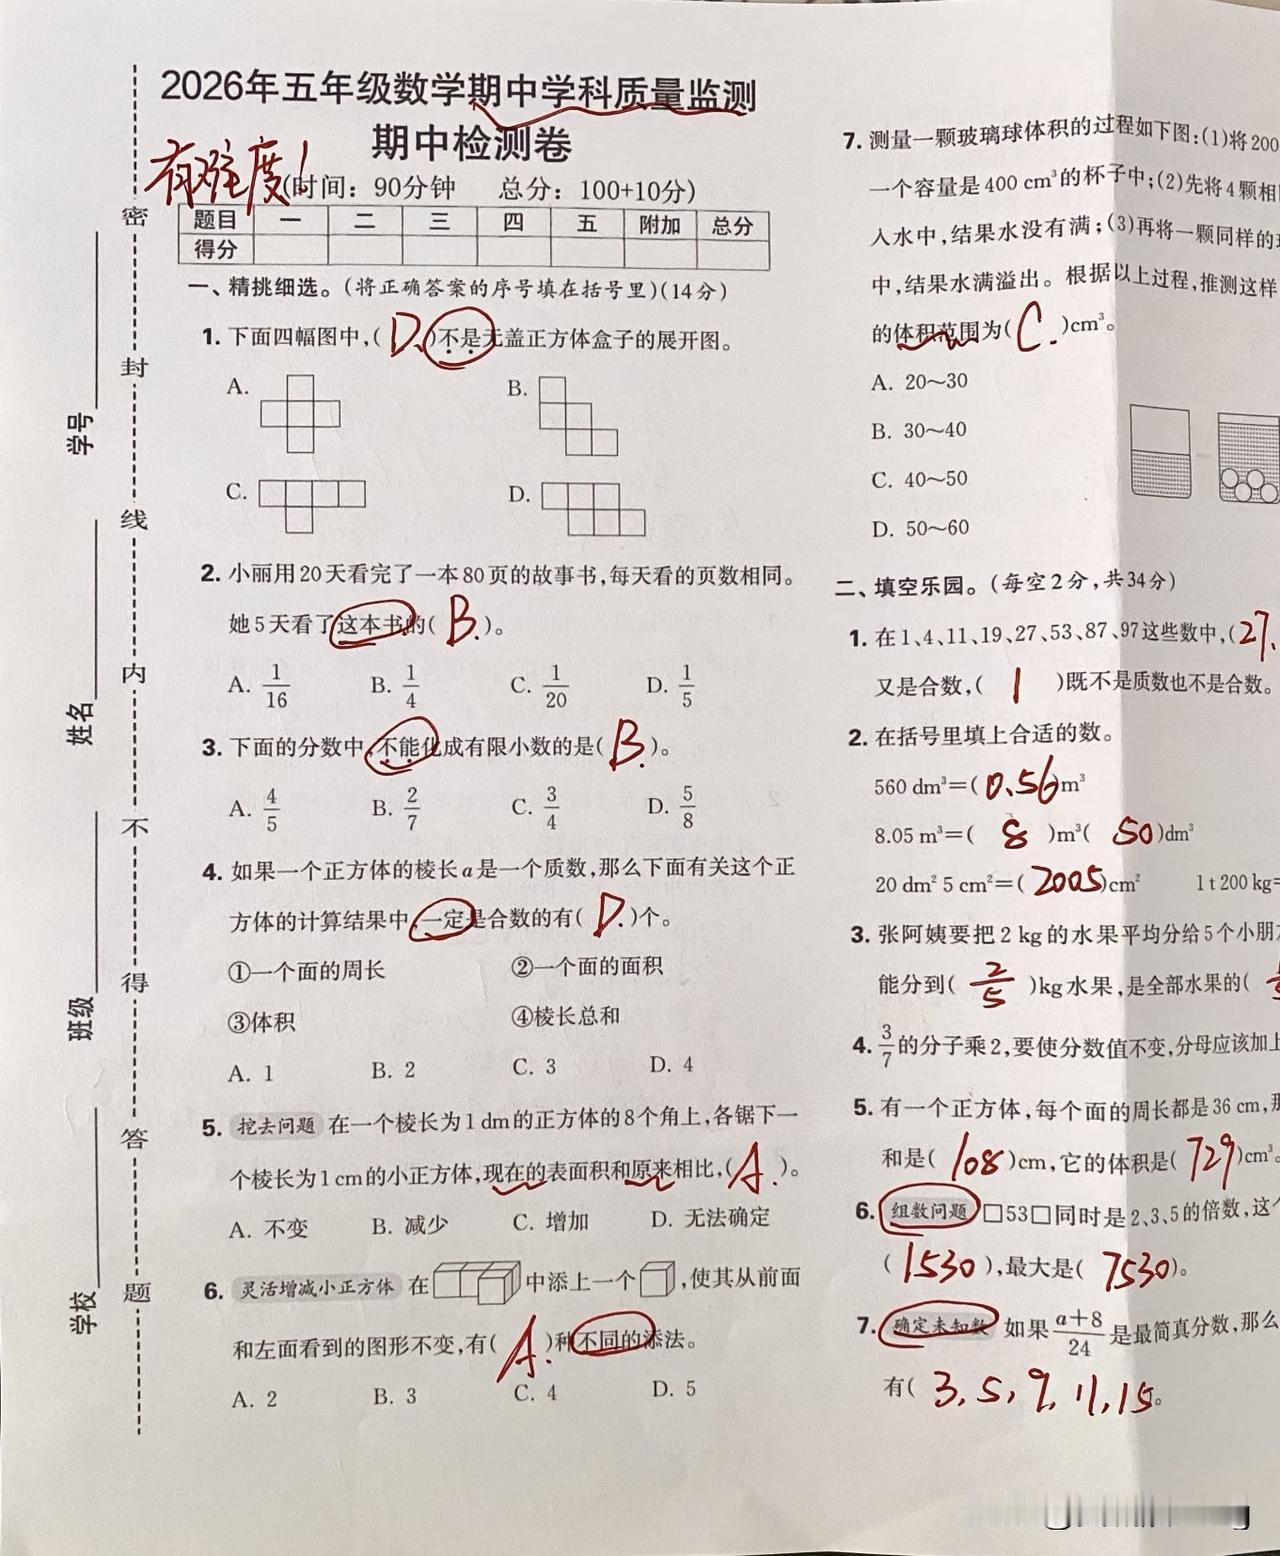 2026年五年级数学期中学科质量监测
期中检测卷
有难度!
(时间：90分钟 总分：100+10分)
题目 一 二 三 四 五 附加 总分
得分
一、精挑细选。(将正确答案的序号填在括号里)(14分)
1. 下面四幅图中,( D. )不是无盖正方体盒子的展开图。
A. B.
C. D.
2. 小丽用20天看完了一本80页的故事书,每天看的页数相同。
她5天看了这本书的( B. )。
A. 1/16 B. 1/4 C. 1/20 D. 1/5
3. 下面的分数中,不能化成有限小数的是( B. )。
A. 4/5 B. 2/7 C. 3/4 D. 5/8
4. 如果一个正方体的棱长a是一个质数,那么下面有关这个正
方体的计算结果中,一定是合数的有( D. )个。
①一个面的周长 ②一个面的面积
③体积 ④棱长总和
A. 1 B. 2 C. 3 D. 4
5. 挖去问题 在一个棱长为1 dm的正方体的8个角上,各锯下一
个棱长为1cm的小正方体,现在的表面积和原来相比,( A. )。
A. 不变 B. 减少 C. 增加 D. 无法确定
6. 灵活增减小正方体 在 中添上一个 ,使其从前面
和左面看到的图形不变,有( A. )种不同的添法。
A. 2 B. 3 C. 4 D. 5
7. 测量一颗玻璃球体积的过程如下图:(1)将200
一个容量是400 cm³的杯子中;(2)先将4颗相
入水中,结果水没有满;(3)再将一颗同样的
中,结果水满溢出。根据以上过程,推测这样
的体积范围为( C. )cm³。
A. 20～30
B. 30～40
C. 40～50
D. 50～60
二、填空乐园。(每空2分,共34分)
1. 在1、4、11、19、27、53、87、97这些数中,( 27,
又是合数,( 1 )既不是质数也不是合数。
2. 在括号里填上合适的数。
560 dm³=( 0.56 )m³
8.05 m³=( 8 )m³( 50 )dm³
20 dm² 5 cm²=( 2005 )cm² 1 t 200 kg=
3. 张阿姨要把2 kg的水果平均分给5个小朋
能分到( 2/5 )kg水果,是全部水果的(
4. 3/7的分子乘2,要使分数值不变,分母应该加上
5. 有一个正方体,每个面的周长都是36 cm,
和是( 108 )cm,它的体积是( 729 )cm³。
6. 组数问题 □53□同时是2、3、5的倍数,这
( 1530 ),最大是( 7530 )。
7. 确定未知数 如果(a+8)/24是最简真分数,那么
有( 3, 5, 9, 11, 15。
密
封
线
内
不
得
答
题
学号
姓名
班级
学校